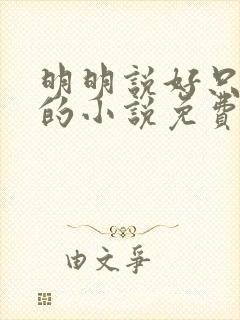 明明說好只
的小說免費
由文爭